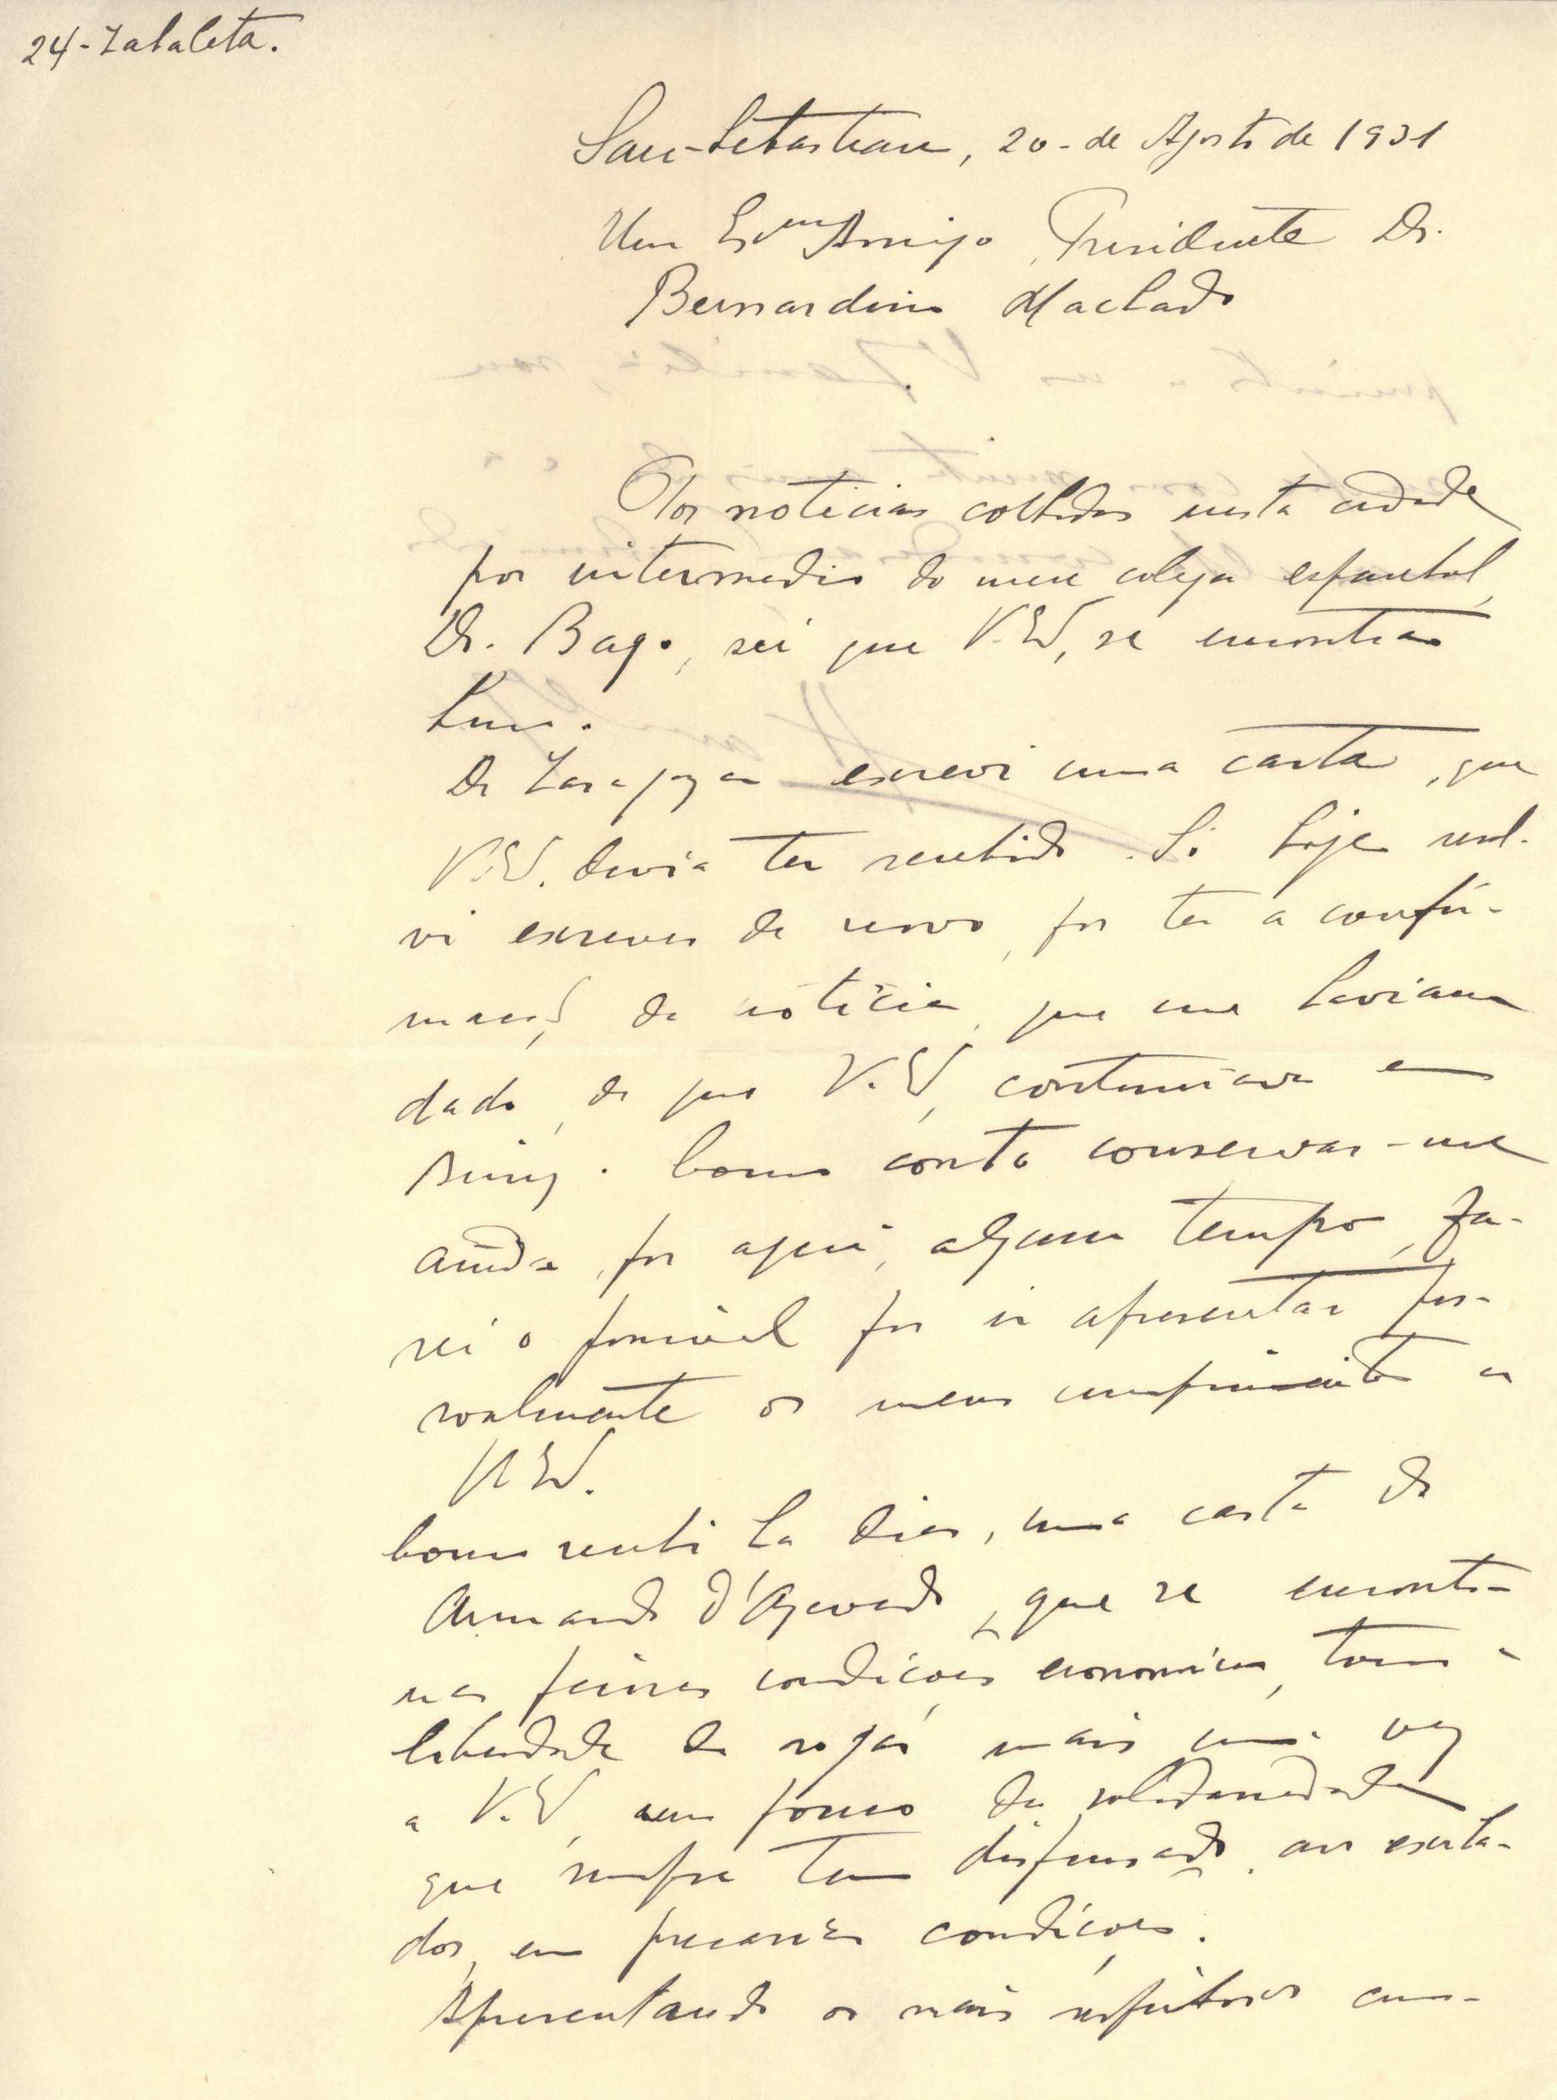 24-Zabaleta.
San-Sebastian, 20-de Agosto de 1931
Meu Exmo Amigo, Presidente Dr.
Bernardino Machado
Por noticias colhidas nesta cidade
por intermedio do meu colega espanhol,
Dr. Bago, sei que V. Ex, se encontra
bem.
De Zaragoza escrevi uma carta, que
V. Ex. devia ter recebido. Só hoje resol-
vi escrever de novo, por ter a confir-
mação, da noticia, que me haviam
dado, de que V. Ex, continuava em
. Como conto conservar-me
ainda, por aqui, algum tempo, fa-
rei o possivel por ir apresentar pes-
soalmente os meus cumprimentos a
V. Ex.
Como recebi ha dias, uma carta de
Armando d'Azevedo, que se encontra
nas peiores condições economicas, tomo a
liberdade de rogar mais uma vez
a V. Ex, um pouco da solidariedade
que sempre tem dispensado aos exila-
dos, em precarias condições.
Apresentando os mais respeitosos cum-